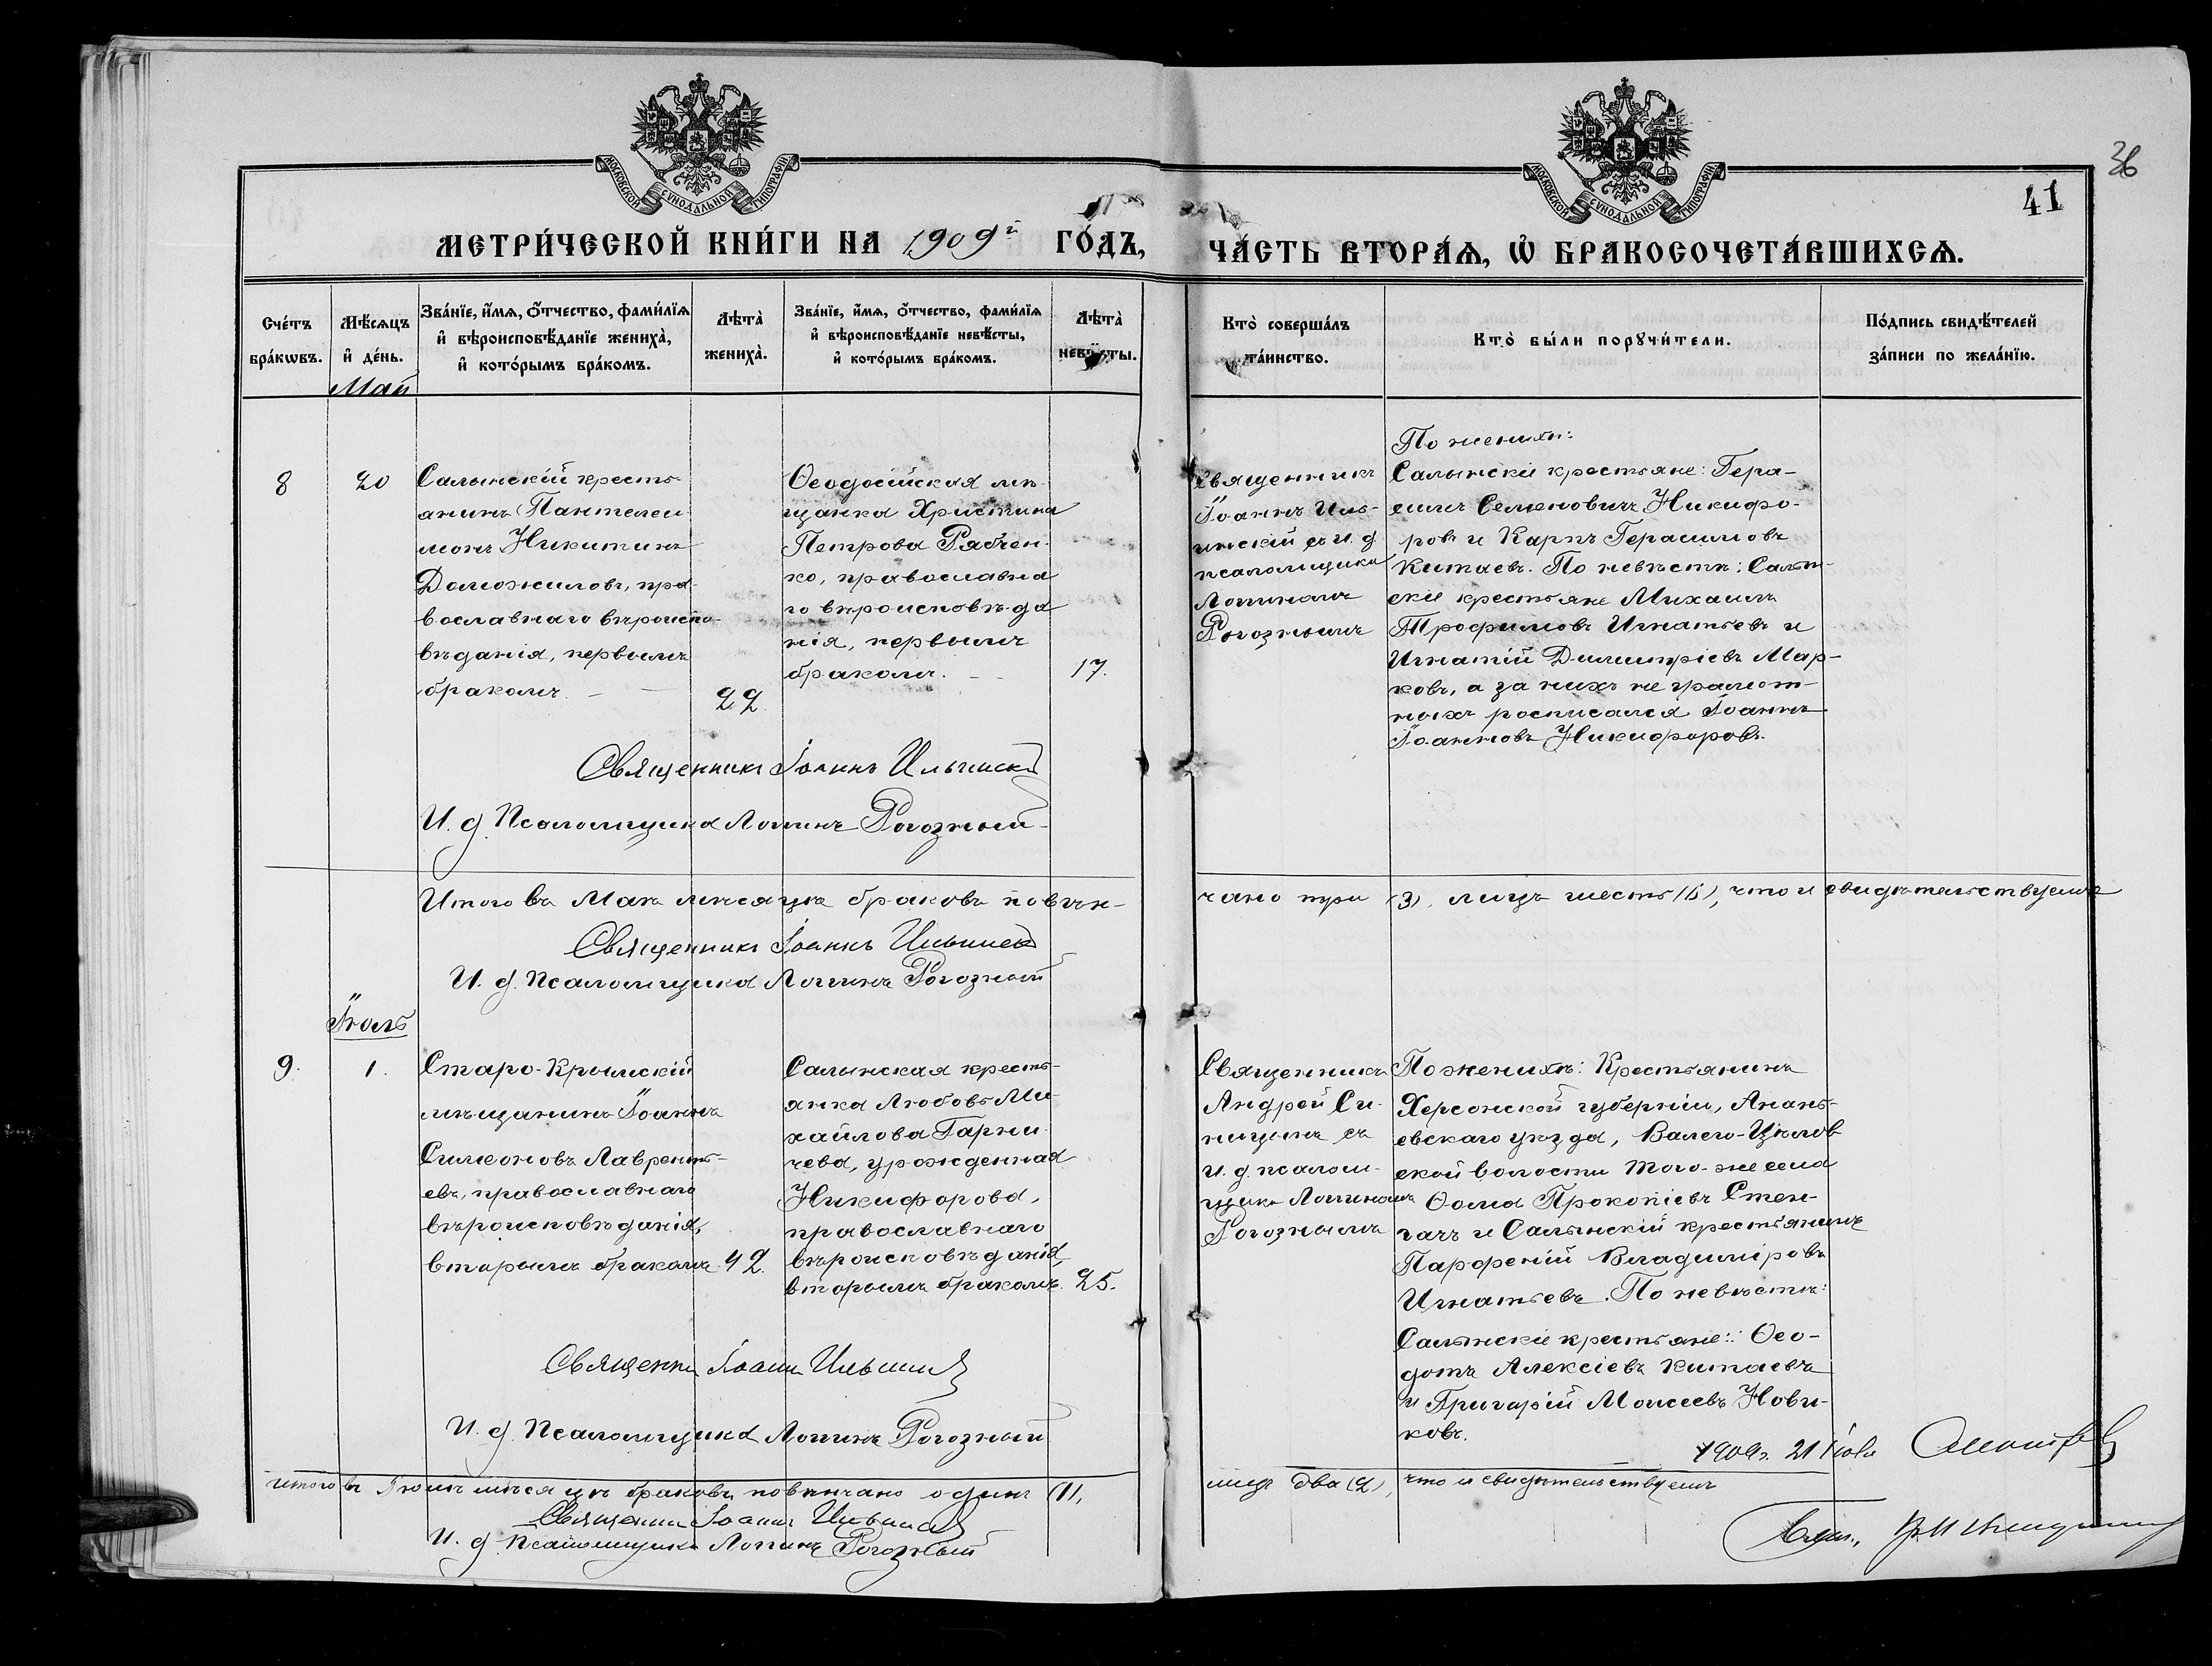 МОСКОВСКОЙ СѴНОДАЛЬНОЙ ТИПОГРАФІИ
МОСКОВСКОЙ СѴНОДАЛЬНОЙ ТИПОГРАФІИ
36
41
МЕТРИ́ЧЕСКОЙ КНИ́ГИ НА 1909й ГО́ДЪ,
ЧА́СТЬ ВТОРА́Ѧ, Ѽ БРАКОСОЧЕТА́ВШИХСѦ.
Сче́тъ бра́кѡвъ.
Мѣ́сяцъ и҆ де́нь.
Зва́нїе, и҆́мѧ, ѻ҆́тчество, фами́лїѧ
и҆ вѣроисповѣ́данїе жениха̀,
и҆ кото́рымъ бра́комъ.
Лѣта̀ жениха̀.
Зва́нїе, и҆́мѧ, ѻ҆́тчество, фами́лїѧ
и҆ вѣроисповѣ́данїе невѣ́сты,
и҆ кото́рымъ бра́комъ.
Лѣта̀ невѣ́сты.
Кто̀ соверша́лъ
та́инство.
Кто̀ бы́ли порꙋчи́тели.
По́дпись свидѣ́телей
за́писи по жела́нїю.
Май
8
20
Салынскій кресть-
янинъ Пантелеи-
монъ Никитинъ
Доможиловъ, пра-
вославнаго вѣроиспо-
вѣданія, первымъ
бракомъ.
22
Ѳеодосійская мѣ-
щанка Христина
Петрова Рябчен-
ко, православна
го вѣроисповѣда
нія, первымъ
бракомъ.
17.
Священникъ
Іоаннъ Иль-
инскій съ и. д.
псаломщика
Логиномъ
Рогознымъ
По женихѣ:
Салынскіе крестьяне: Гера-
симъ Семеновичъ Никифо-
ровъ и Карпъ Герасимовъ
Китаевъ. По невѣстѣ: Салын-
скіе крестьяне Михаилъ
Трофимовъ Игнатьевъ и
Игнатій Димитріевъ Мар-
ковъ, а за нихъ не грамот-
ныхъ росписался Іоаннъ
Іоанновъ Никифоровъ.
Священникъ Іоаннъ Ильинскій
И. д. Псаломщика Логинъ Рогозный
Итого въ Маѣ мѣсяцѣ браковъ повѣн-
чано три (3), лицъ шесть (6), что и свидѣтельствуемъ
Священникъ Іоаннъ Ильинскій
И. д. Псаломщика Логинъ Рогозный
Іюль
9.
1.
Старо-Крымскій
мѣщанинъ Іоаннъ
Симеоновъ Лавренть-
евъ, православнаго
вѣроисповѣданія,
вторымъ бракомъ
42.
Салынская кресть-
янка Любовь Ми-
хайлова Гарни-
чева, урожденная
Никифорова,
православнаго
вѣроисповѣданія,
вторымъ бракомъ.
25.
Священникъ
Андрей Си-
ницынъ съ
и. д. псалом-
щика Логиномъ
Рогознымъ
По женихѣ: Крестьянинъ
Херсонской губерніи, Анань-
евскаго уѣзда, Валего-Цулов
ской волости того-же села
Ѳома Прокопіевъ Стен-
гачъ и Салынскій крестьянинъ
Парфеній Владиміровъ
Игнатьевъ. По невѣстѣ:
Салынскіе крестьяне: Ѳео-
дотъ Алексіевъ Китаевъ
и Григорій Моисеевъ Нови-
ковъ.
Священникъ Іоаннъ Ильинскій
И. д. Псаломщика Логинъ Рогозный
1909 г. 21 Іюля
Итого въ Іюлѣ мѣсяцѣ браковъ повѣнчано одинъ (1),
лицъ два (2), что и свидѣтельствуемъ
Священникъ Іоаннъ Ильинскій
И. д. Псаломщика Логинъ Рогозный